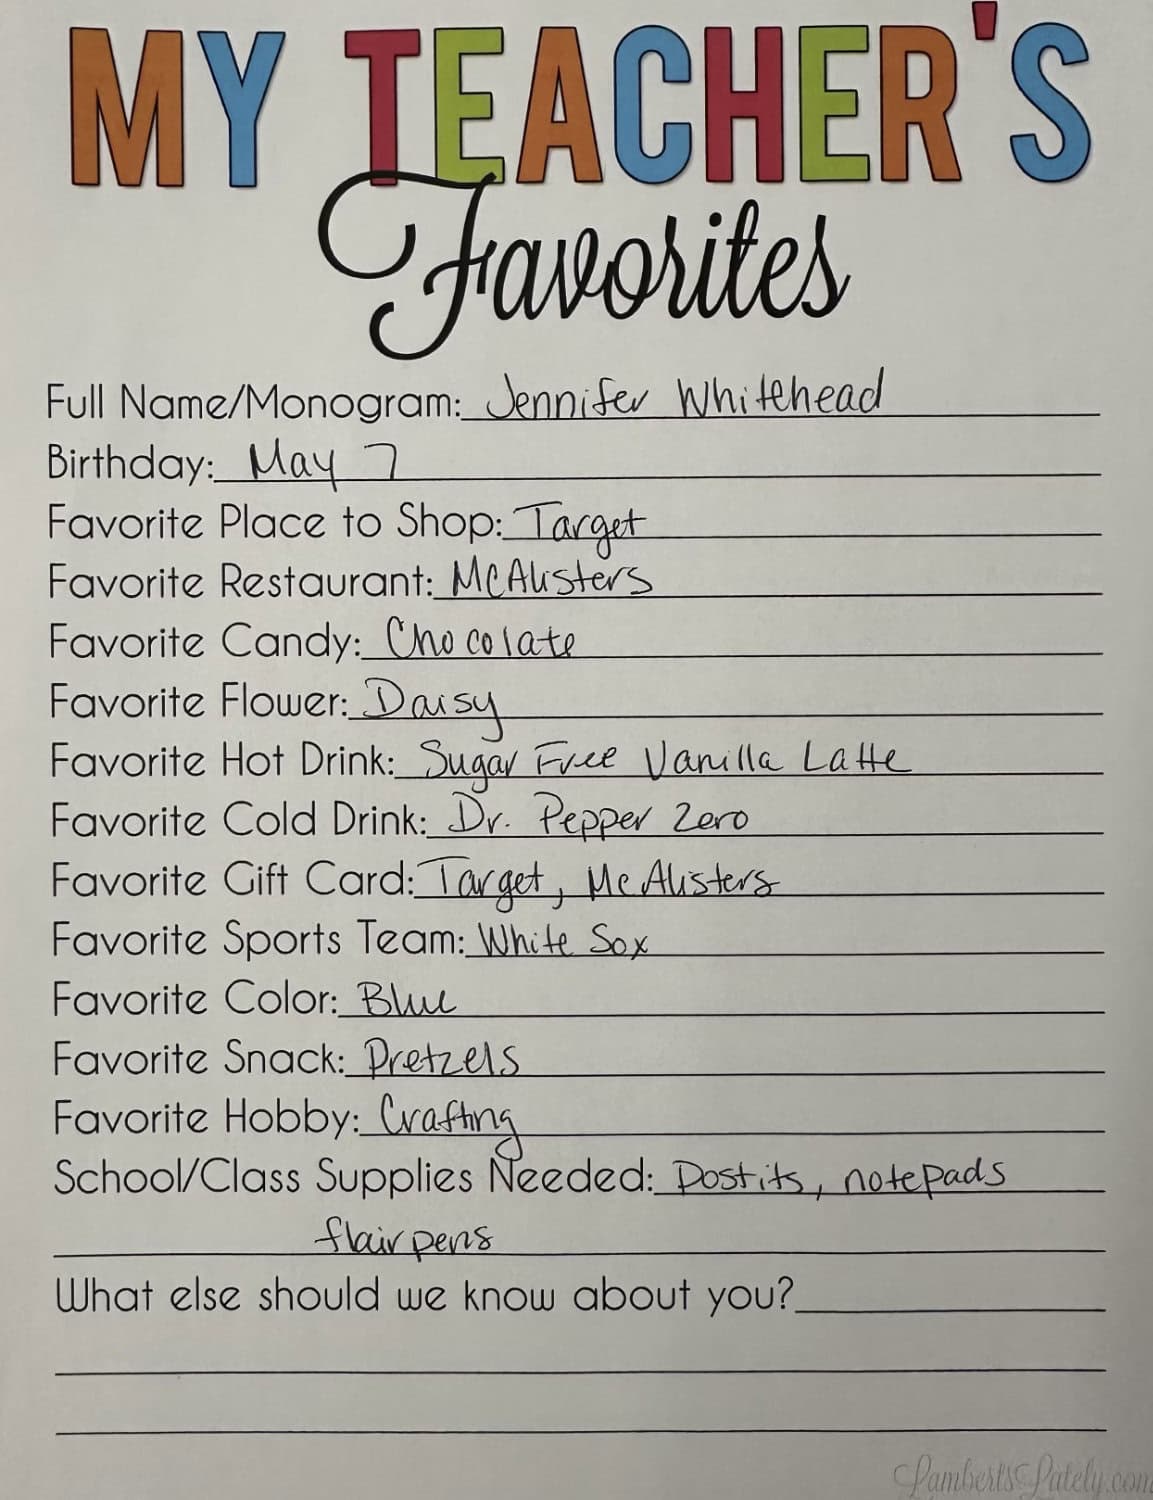 MY TEACHER'S
Favorites
Full Name/Monogram: Jennifer Whitehead
Birthday: May 7
Favorite Place to Shop: Target
Favorite Restaurant: McAlisters
Favorite Candy: Chocolate
Favorite Flower: Daisy
Favorite Hot Drink: Sugar Free Vanilla Latte
Favorite Cold Drink: Dr. Pepper Zero
Favorite Gift Card: Target, McAlisters
Favorite Sports Team: White Sox
Favorite Color: Blue
Favorite Snack: Pretzels
Favorite Hobby: Crafting
School/Class Supplies Needed: Postits, notepads
flair pens
What else should we know about you?
LambertsLately.com